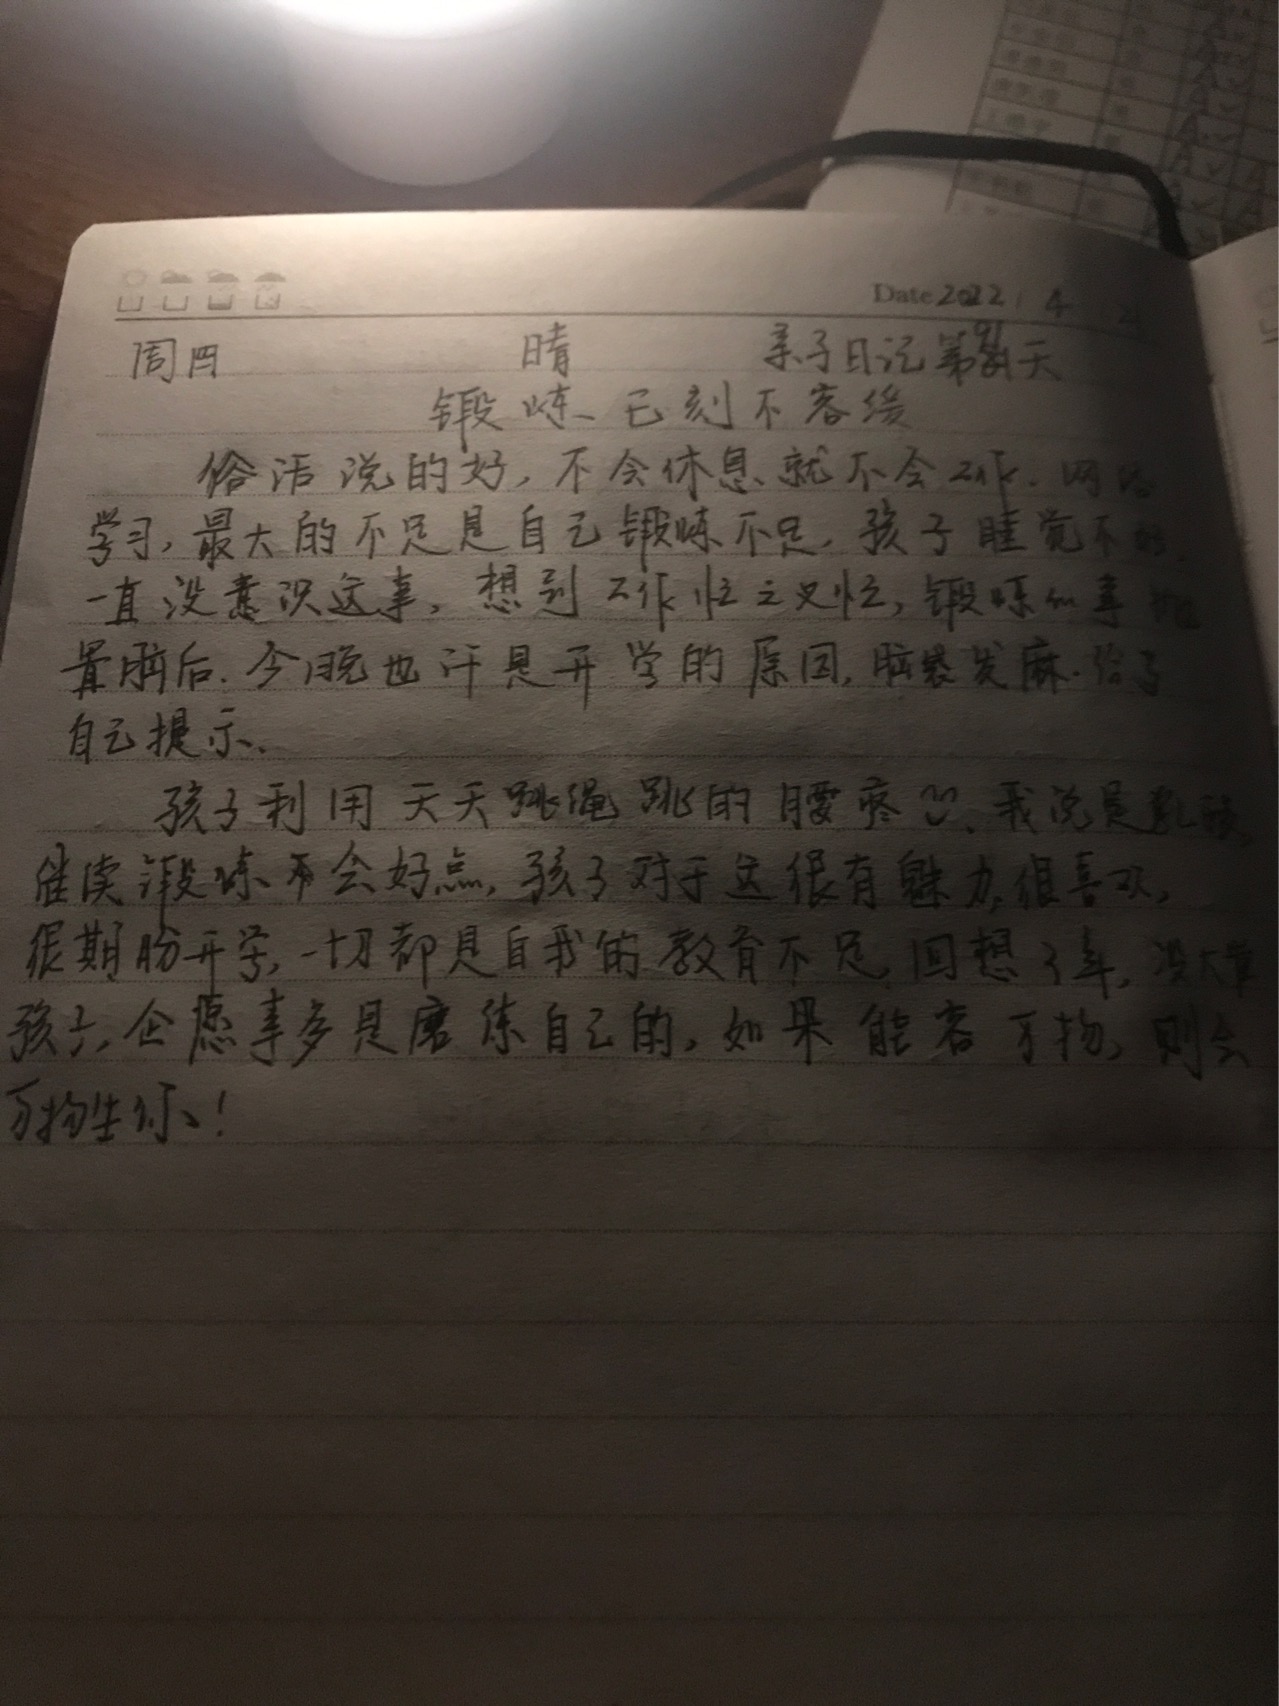 Date 2022 4
周四 晴 亲子日记第91天
锻炼已刻不容缓
俗话说的好,不会休息就不会工作.网络
学习,最大的不足是自己锻炼不足.孩子睡觉不
一直没意识这事,想到工作忙之又忙,锻炼的事
置脑后.今晚也许是开学的原因,脑袋发麻.给了
自己提示.
孩子利用天天跳绳跳的腰疼 我说是
继续锻炼会好点,孩子对于这很有魅力,很喜欢,
很期盼开学,一切都是自我的教育不足,回想了
孩子,企愿事多是磨练自己的,如果能容万物,则会
万物生你!